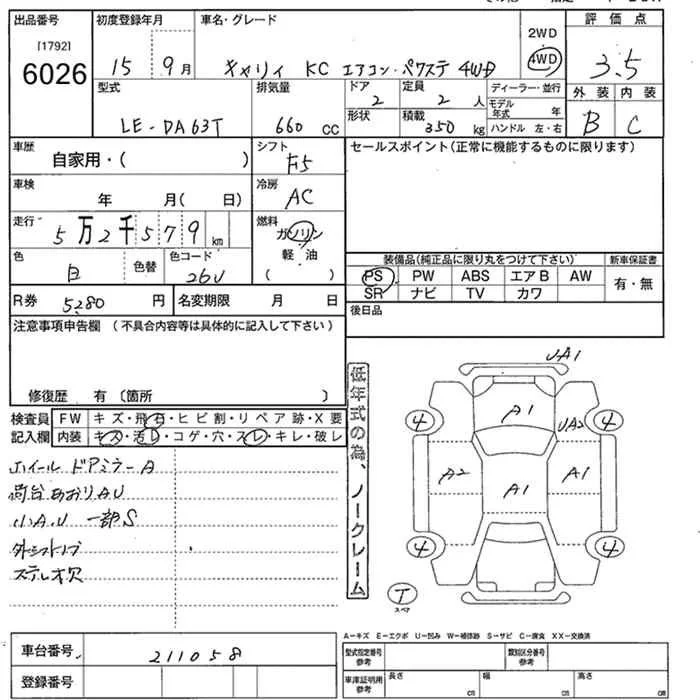 出品番号 初度登録年月 車名・グレード 評価点
[1792]
6026
15 9月 キャリイ KC エアコン・パワステ 4WD
2WD
4WD
3.5
型式 排気量 ドア 定員 ディーラー・並行 外装 内装
LE-DA63T 660 CC 2 2人
モデル年式 年
形状 積載 350 kg ハンドル 左・右 B C
車歴 自家用・( ) シフト F5 セールスポイント(正常に機能するものに限ります)
車検 年 月( 日) 冷房 AC
走行 5万2千579km 燃料 ガソリン
軽油
( )
色 白 色替 色コード 26U
装備品(純正品に限り丸をつけて下さい) 新車保証書
PS PW ABS エアB AW 有・無
SR ナビ TV カワ
R券 5,280 円 名変期限 月 日 後日品
注意事項申告欄 (不具合内容等は具体的に記入して下さい)
修復歴 有 (箇所 )
検査員 FW キズ・飛石・ヒビ割・リペア跡・X要
記入欄 内装 キズ・汚レ・コゲ・穴・スレ・キレ・破レ
ホイール ドアミラーA
荷台あおりAU
小A.U 一部S
外シフトノブ
ステレオ欠
低年式の為、ノークレーム
UA1
A1
4 UA2 4
A2 A1 A1
4 4
T
スペア
A-キズ E-エクボ U-凹み W-補修跡 S-サビ C-腐食 XX-交換済
車台番号 211058
登録番号
型式指定番号 参考 類別区分番号 参考
車庫証明用 参考 長さ cm 幅 cm 高さ cm